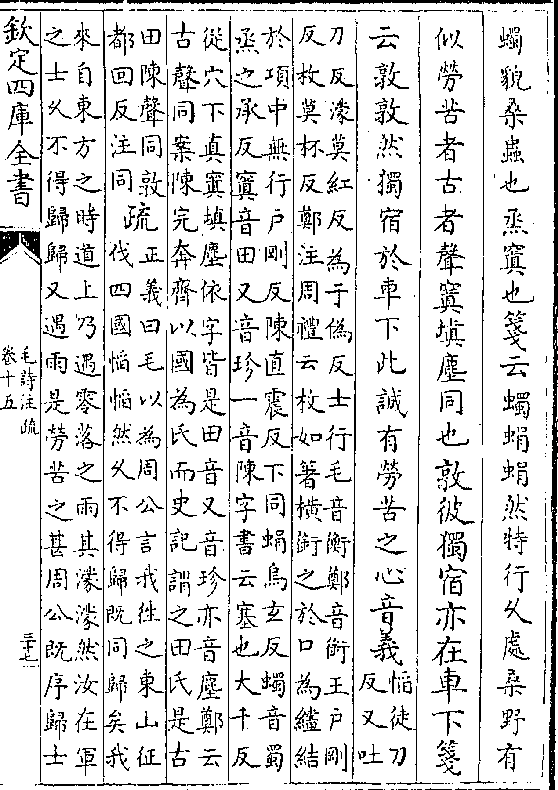 蠋貌桑蟲也烝窴也箋云蠋蜎蜎然特行乆處桑野有
似勞苦者古者聲窴塡塵同也敦彼獨宿亦在車下箋
云敦敦然獨宿於車下此誠有勞苦之心音義
慆徒刀
反又吐
刀反濛莫紅反為于偽反士行毛音衡鄭音銜王戸剛
反枚莫杯反鄭注周禮云枚如箸横銜之於口為繣結
於項中無行戸剛反陳直震反下同蜎烏𤣥反蠋音蜀
烝之承反窴音田又音珍一音陳字書云塞也大千反
從穴下真窴填塵依字皆是田音又音珍亦音塵鄭云
古聲同案陳完奔齊以國為氏而史記謂之田氏是古
田陳聲同敦
都回反注同
疏
正義曰毛以為周公言我徃之東山征
伐四國慆慆然乆不得歸既同歸矣我
來自東方之時道上乃遇零落之雨其濛濛然汝在軍
之士乆不得歸歸又遇雨是勞苦之甚周公既序歸士
欽定四庫全書
毛詩注疏
卷十五
三十七